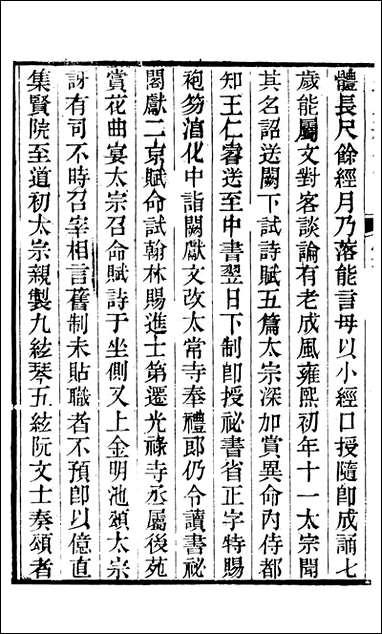 體長尺餘經月乃落能言母以小經口授隨卽成誦七
歲能屬文對客談論有老成風雍熙初年十一太宗聞
其名詔送闕下試詩賦五篇太宗深加賞異命內侍都
知王仁睿送至中書翌日下制卽授祕書省正字特賜
袍笏淳化中詣闕獻文改太常寺奉禮郎仍令讀書祕
閣獻二京賦命試翰林賜進士第遷光祿寺丞屬後苑
賞花曲宴太宗召命賦詩于坐側又上金明池頌太宗
訝有司不時召宰相言舊制未貼職者不預卽以億直
集賢院至道初太宗親製九絃琴五絃阮文士奏頌者